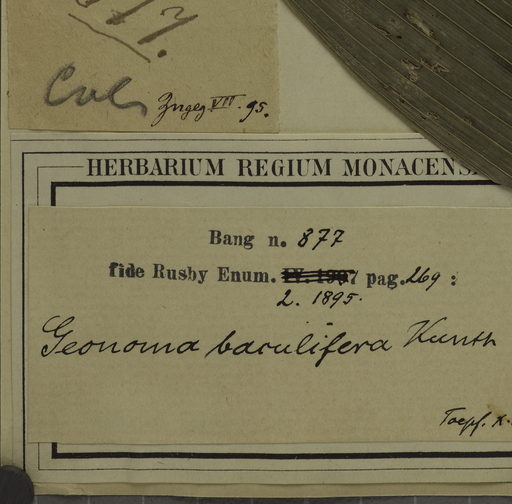 Zugeg VII. 95.
HERBARIUM REGIUM MONACENS
Bang n. 877
fide Rusby Enum. IV. 1907 pag. 269 :
2. 1895.
Geonoma baculifera Kunth